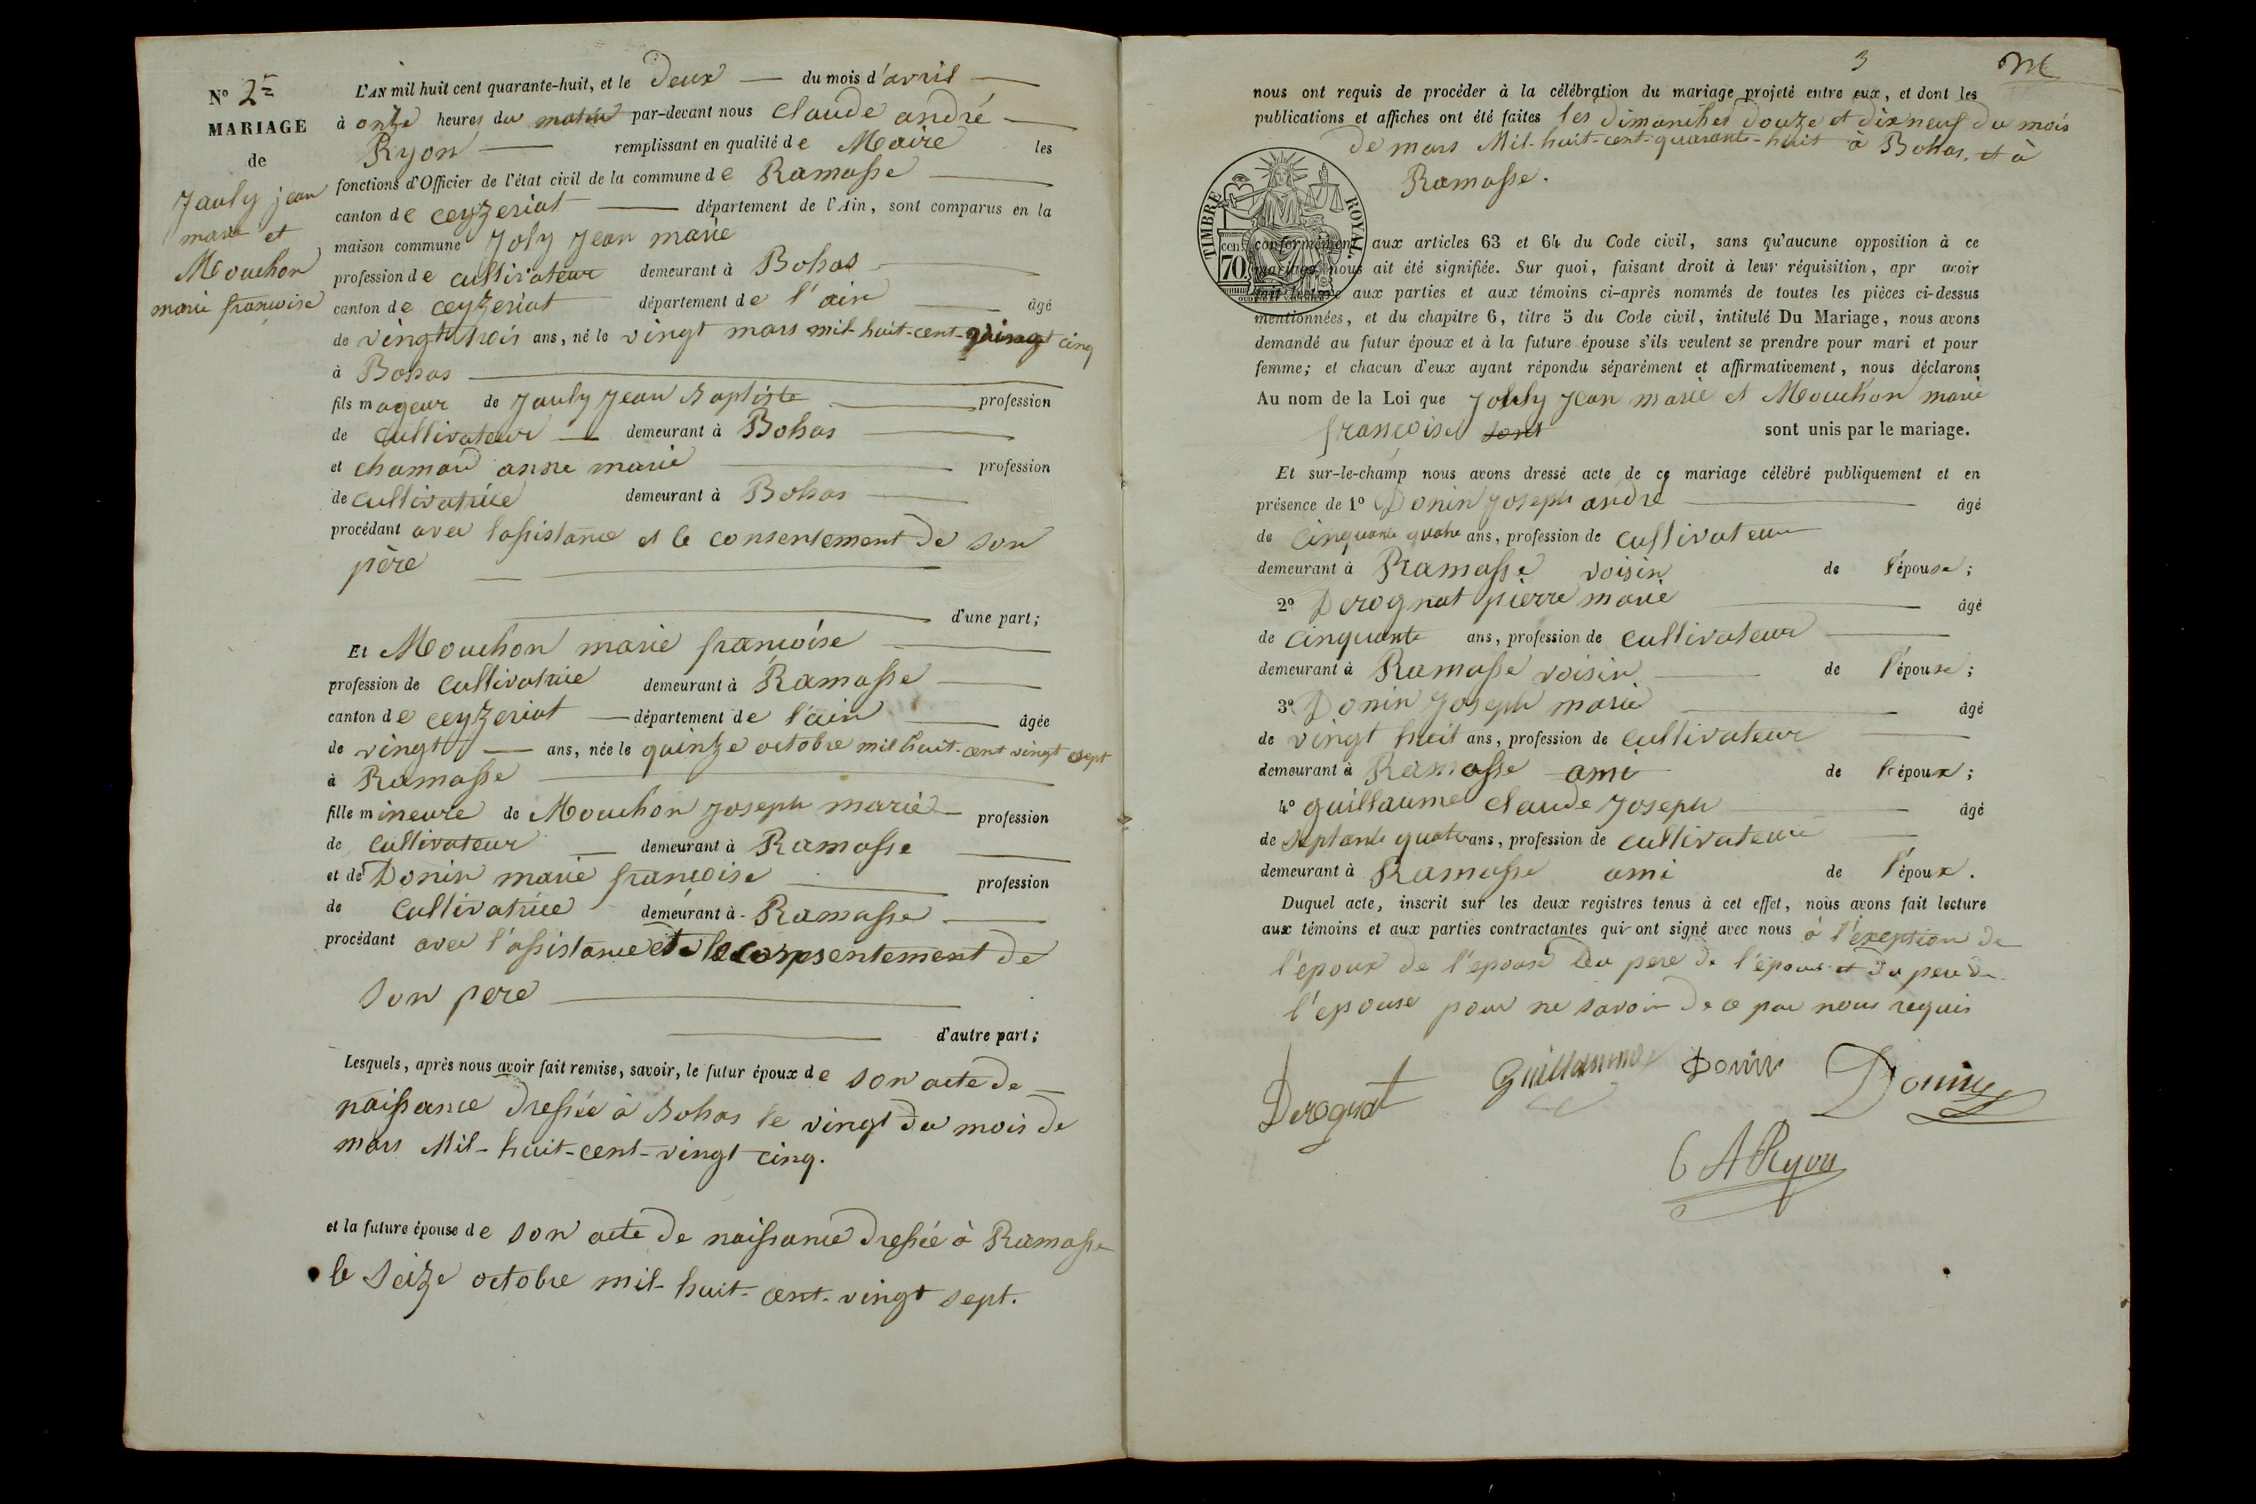 N° 2e
MARIAGE
de
Jauly jean
marie et
Mouchon
marie françoise
L'AN mil huit cent quarante-huit, et le deux du mois d'avril
à onze heures du matin par-devant nous Claude andré
Ryon remplissant en qualité de Maire les
fonctions d'Officier de l'état civil de la commune de Ramasse
canton de ceyzeriat département de l'Ain, sont comparus en la
maison commune Joly Jean marie
profession de cultivateur demeurant à Bohas
canton de ceyzeriat département de l'ain âgé
de vingt trois ans, né le vingt mars mil-huit-cent-vingt cinq
à Bohas
fils mageur de Jauly Jean Baptiste profession
de cultivateur demeurant à Bohas
et chamard anne marie profession
de cultivatrice demeurant à Bohas
procédant avec l'assistance et le consentement de son
père
d'une part;
Et Mouchon marie françoise
profession de cultivatrice demeurant à Ramasse
canton de ceyzeriat département de l'ain âgée
de vingt ans, née le quinze octobre mil huit-cent vingt sept
à Ramasse
fille mineure de Mouchon Joseph marie profession
de cultivateur demeurant à Ramasse
et de Donin marie françoise profession
de cultivatrice demeurant à Ramasse
procédant avec l'assistance et le consentement de
son pere
d'autre part;
Lesquels, après nous avoir fait remise, savoir, le futur époux de son acte de
naissance dressée à Bohas le vingt du mois de
mars Mil-huit-cent-vingt cinq.
et la future épouse de son acte de naissance dressée à Ramasse
le seize octobre mil-huit-cent-vingt sept.
3
nous ont requis de procéder à la célébration du mariage projeté entre eux, et dont les
publications et affiches ont été faites les dimanches douze et dix neuf du mois
de mars Mil-huit-cent-quarante-huit à Bohas, et à
Ramasse.
TIMBRE ROYAL
70 cent
conformément aux articles 63 et 64 du Code civil, sans qu'aucune opposition à ce
mariage nous ait été signifiée. Sur quoi, faisant droit à leur réquisition, apr avoir
fait lecture aux parties et aux témoins ci-après nommés de toutes les pièces ci-dessus
mentionnées, et du chapitre 6, titre 5 du Code civil, intitulé Du Mariage, nous avons
demandé au futur époux et à la future épouse s'ils veulent se prendre pour mari et pour
femme; et chacun d'eux ayant répondu séparément et affirmativement, nous déclarons
Au nom de la Loi que Joly Jean marie et Mouchon marie
françoise sont sont unis par le mariage.
Et sur-le-champ nous avons dressé acte de ce mariage célébré publiquement et en
présence de 1° Donin Joseph andré âgé
de cinquante quatre ans, profession de cultivateur
demeurant à Ramasse voisin de l'épouse;
2° Derognat pierre marie âgé
de cinquante ans, profession de cultivateur
demeurant à Ramasse voisin de l'épouse;
3° Donin Joseph marie âgé
de vingt huit ans, profession de cultivateur
demeurant à Ramasse ami de l'époux;
4° guillaume claude Joseph âgé
de septante quatre ans, profession de cultivateur
demeurant à Ramasse ami de l'époux.
Duquel acte, inscrit sur les deux registres tenus à cet effet, nous avons fait lecture
aux témoins et aux parties contractantes qui ont signé avec nous à l'exeption de
l'epoux de l'epouse du pere de l'époux et du pere de
l'epouse pour ne savoir de ce par nous requis
Derognat Guillaume Donin Donin
C A Ryon